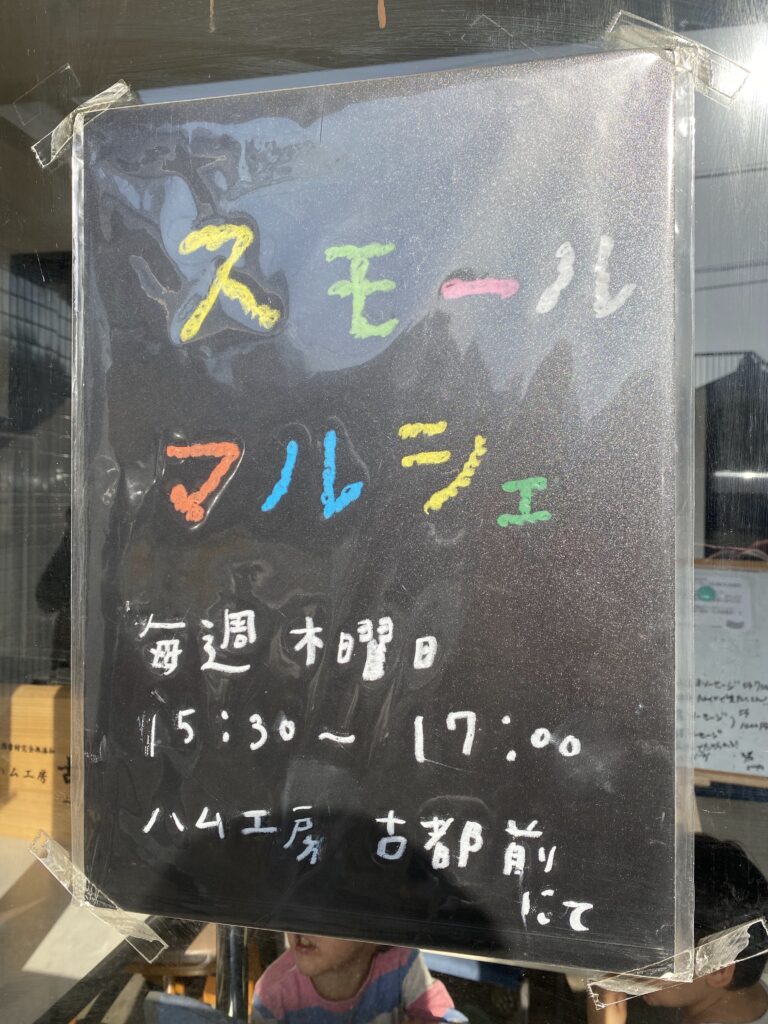 スモール
マルシェ
毎週木曜日
15:30〜17:00
ハム工房 古都前
にて
ハム工房